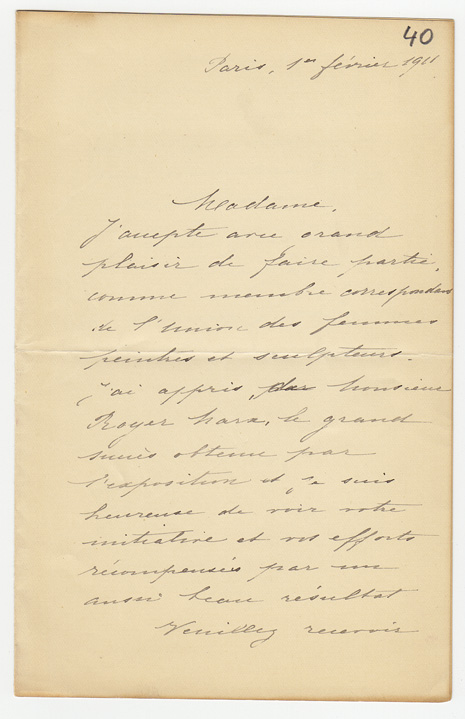 40
Paris, 1er février 1911
Madame,
J'accepte avec grand
plaisir de faire partie,
comme membre correspondant
de l'Union des femmes
peintres et sculpteurs.
J'ai appris, par Monsieur
Royer Marx, le grand
succès obtenu par
l'exposition et je suis
heureuse de voir votre
initiative et vos efforts
récompensés par un
aussi beau résultat
Veuillez recevoir